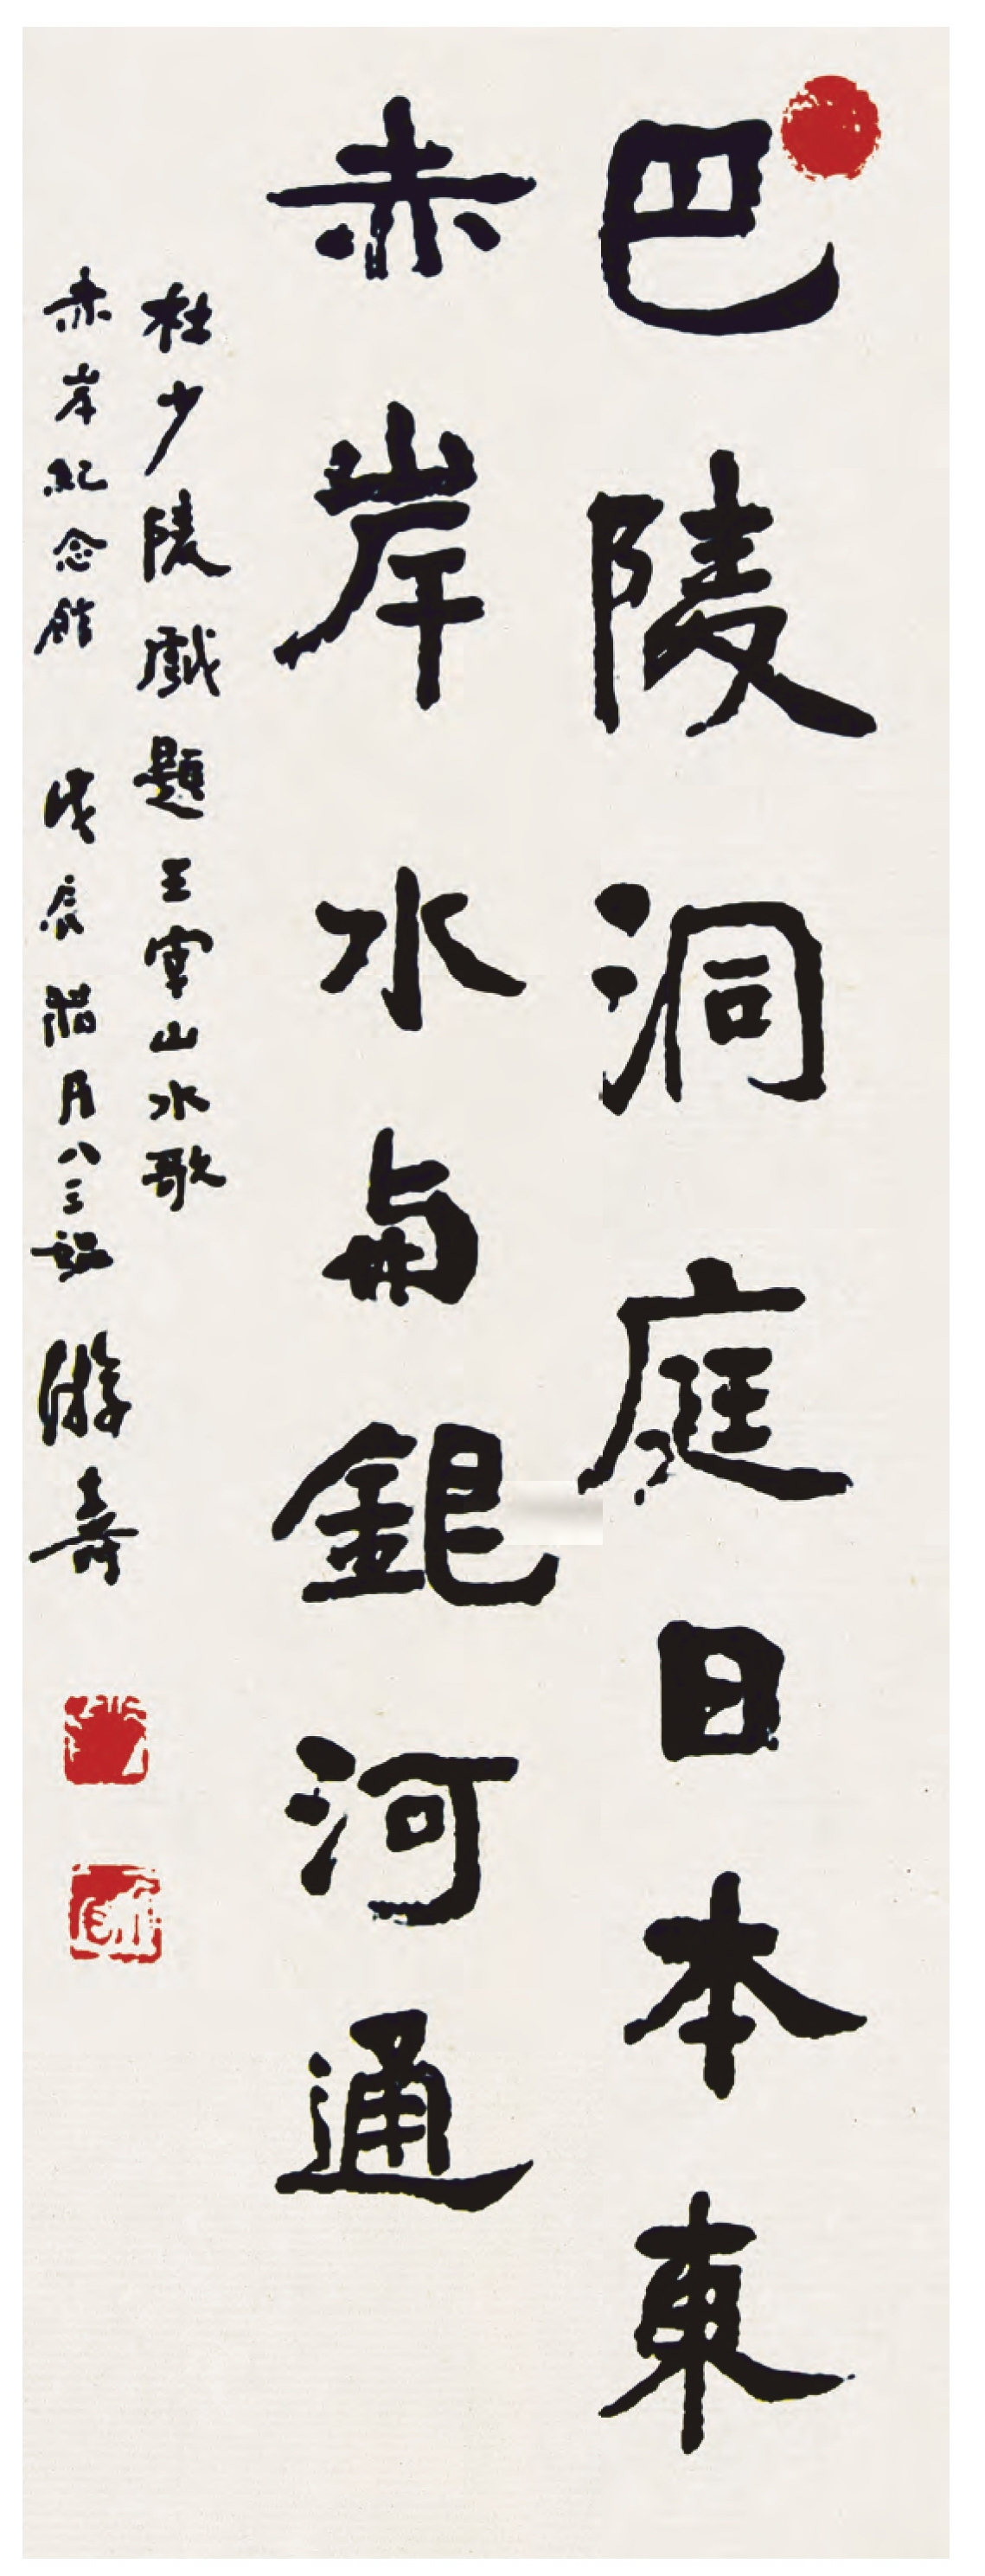 巴陵洞庭日本東
赤岸水与鈀河通
杜少陵戲題王宰山水歌
赤岸紀念館 戊辰臘月八三叟 游壽